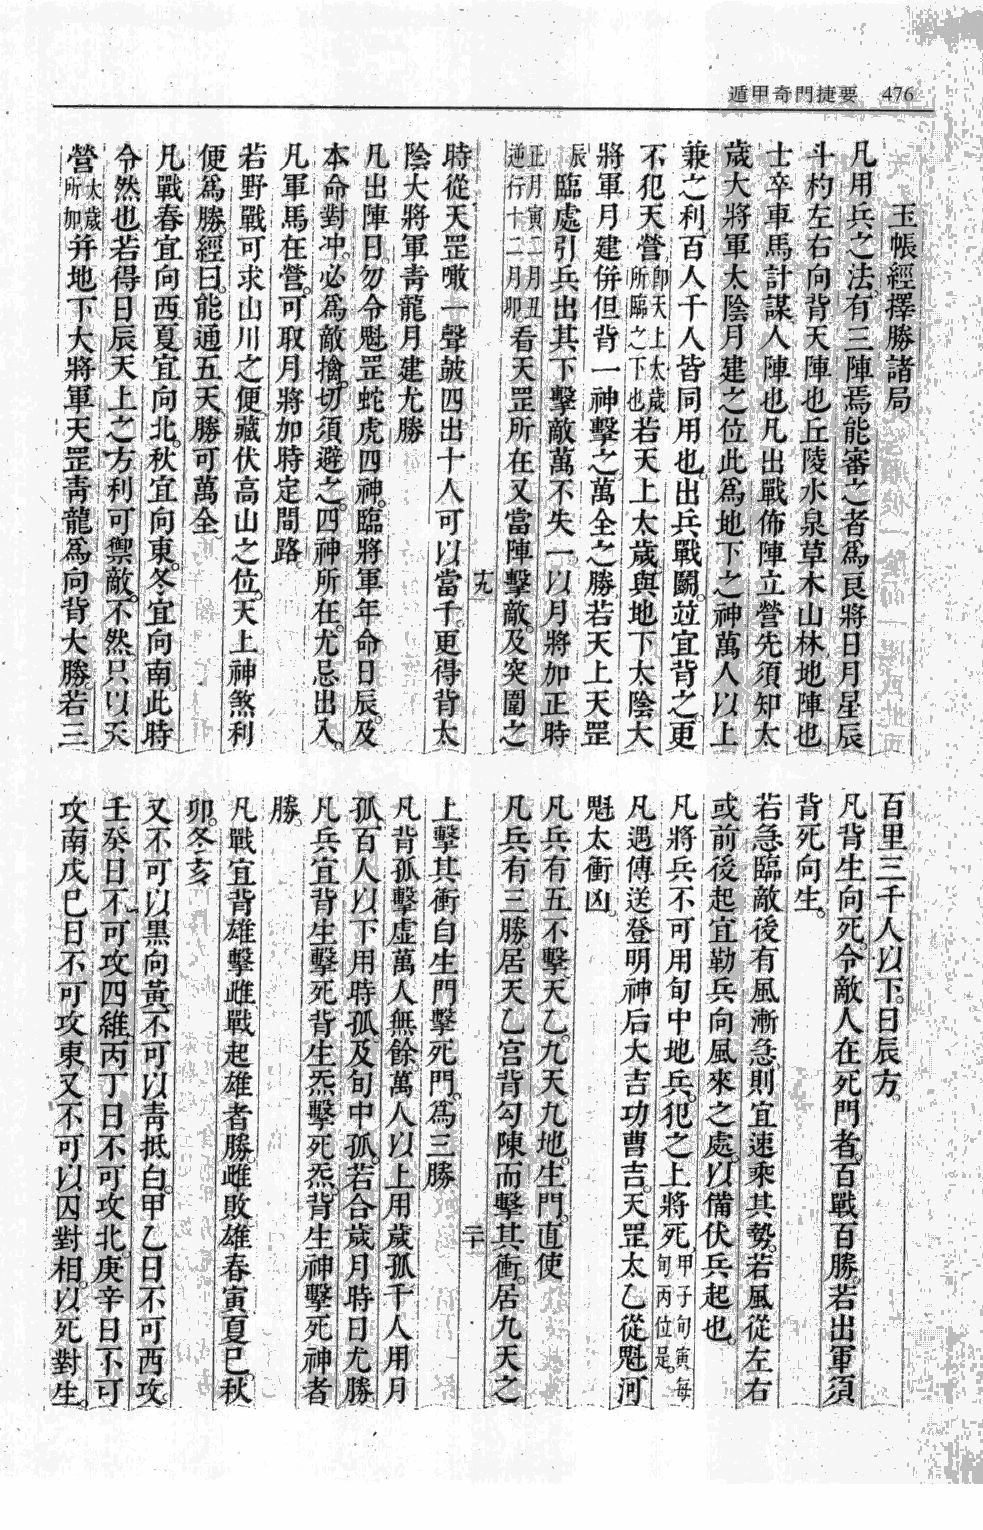 遁甲奇門捷要 476
玉帳經擇勝諸局
凡用兵之法有三陣焉能審之者為良將日月星辰
斗杓左右向背天陣也丘陵水泉草木山林地陣也
士卒車馬計謀人陣也凡出戰佈陣立營先須知太
歲大將軍太陰月建之位此為地下之神萬人以上
兼之利百人千人皆同用也出兵戰鬭並宜背之更
不犯天營卽天上太歲所臨之下也若天上太歲與地下太陰大
將軍月建併但背一神擊之萬全之勝若天上天罡
辰臨處引兵出其下擊敵萬不失一以月將加正時
正月寅二月丑逆行十二月卯看天罡所在又當陣擊敵及突圍之
十九
時從天罡噉一聲皷四出十人可以當千更得背太
陰大將軍靑龍月建尤勝
凡出陣日勿令魁罡蛇虎四神臨將軍年命日辰及
本命對冲必為敵擒切須避之四神所在尤忌出入
凡軍馬在營可取月將加時定間路
若野戰可求山川之便藏伏高山之位天上神煞利
便為勝經曰能通五天勝可萬全
凡戰春宜向西夏宜向北秋宜向東冬宜向南此時
令然也若得日辰天上之方利可禦敵不然只以天
營太歲所加并地下大將軍天罡靑龍為向背大勝若三
百里三千人以下日辰方
凡背生向死令敵人在死門者百戰百勝若出軍須
背死向生
若急臨敵後有風漸急則宜速乘其勢若風從左右
或前後起宜勒兵向風來之處以備伏兵起也
凡將兵不可用旬中地兵犯之上將死甲子旬寅每旬丙位是
凡遇傳送登明神后大吉功曹吉天罡太乙從魁河
魁太衝凶
凡兵有五不擊天乙九天九地生門直使
凡兵有三勝居天乙宮背勾陳而擊其衝居九天之
二十
上擊其衝自生門擊死門為三勝
凡背孤擊虛萬人無餘萬人以上用歲孤千人用月
孤百人以下用時孤及旬中孤若合歲月時日尤勝
凡兵宜背生擊死背生炁擊死炁背生神擊死神者
勝
凡戰宜背雄擊雌戰起雄者勝雌敗雄春寅夏巳秋
卯冬亥
又不可以黑向黃不可以靑抵白甲乙日不可西攻
壬癸日不可攻四維丙丁日不可攻北庚辛日不可
攻南戊巳日不可攻東又不可以囚對相以死對生